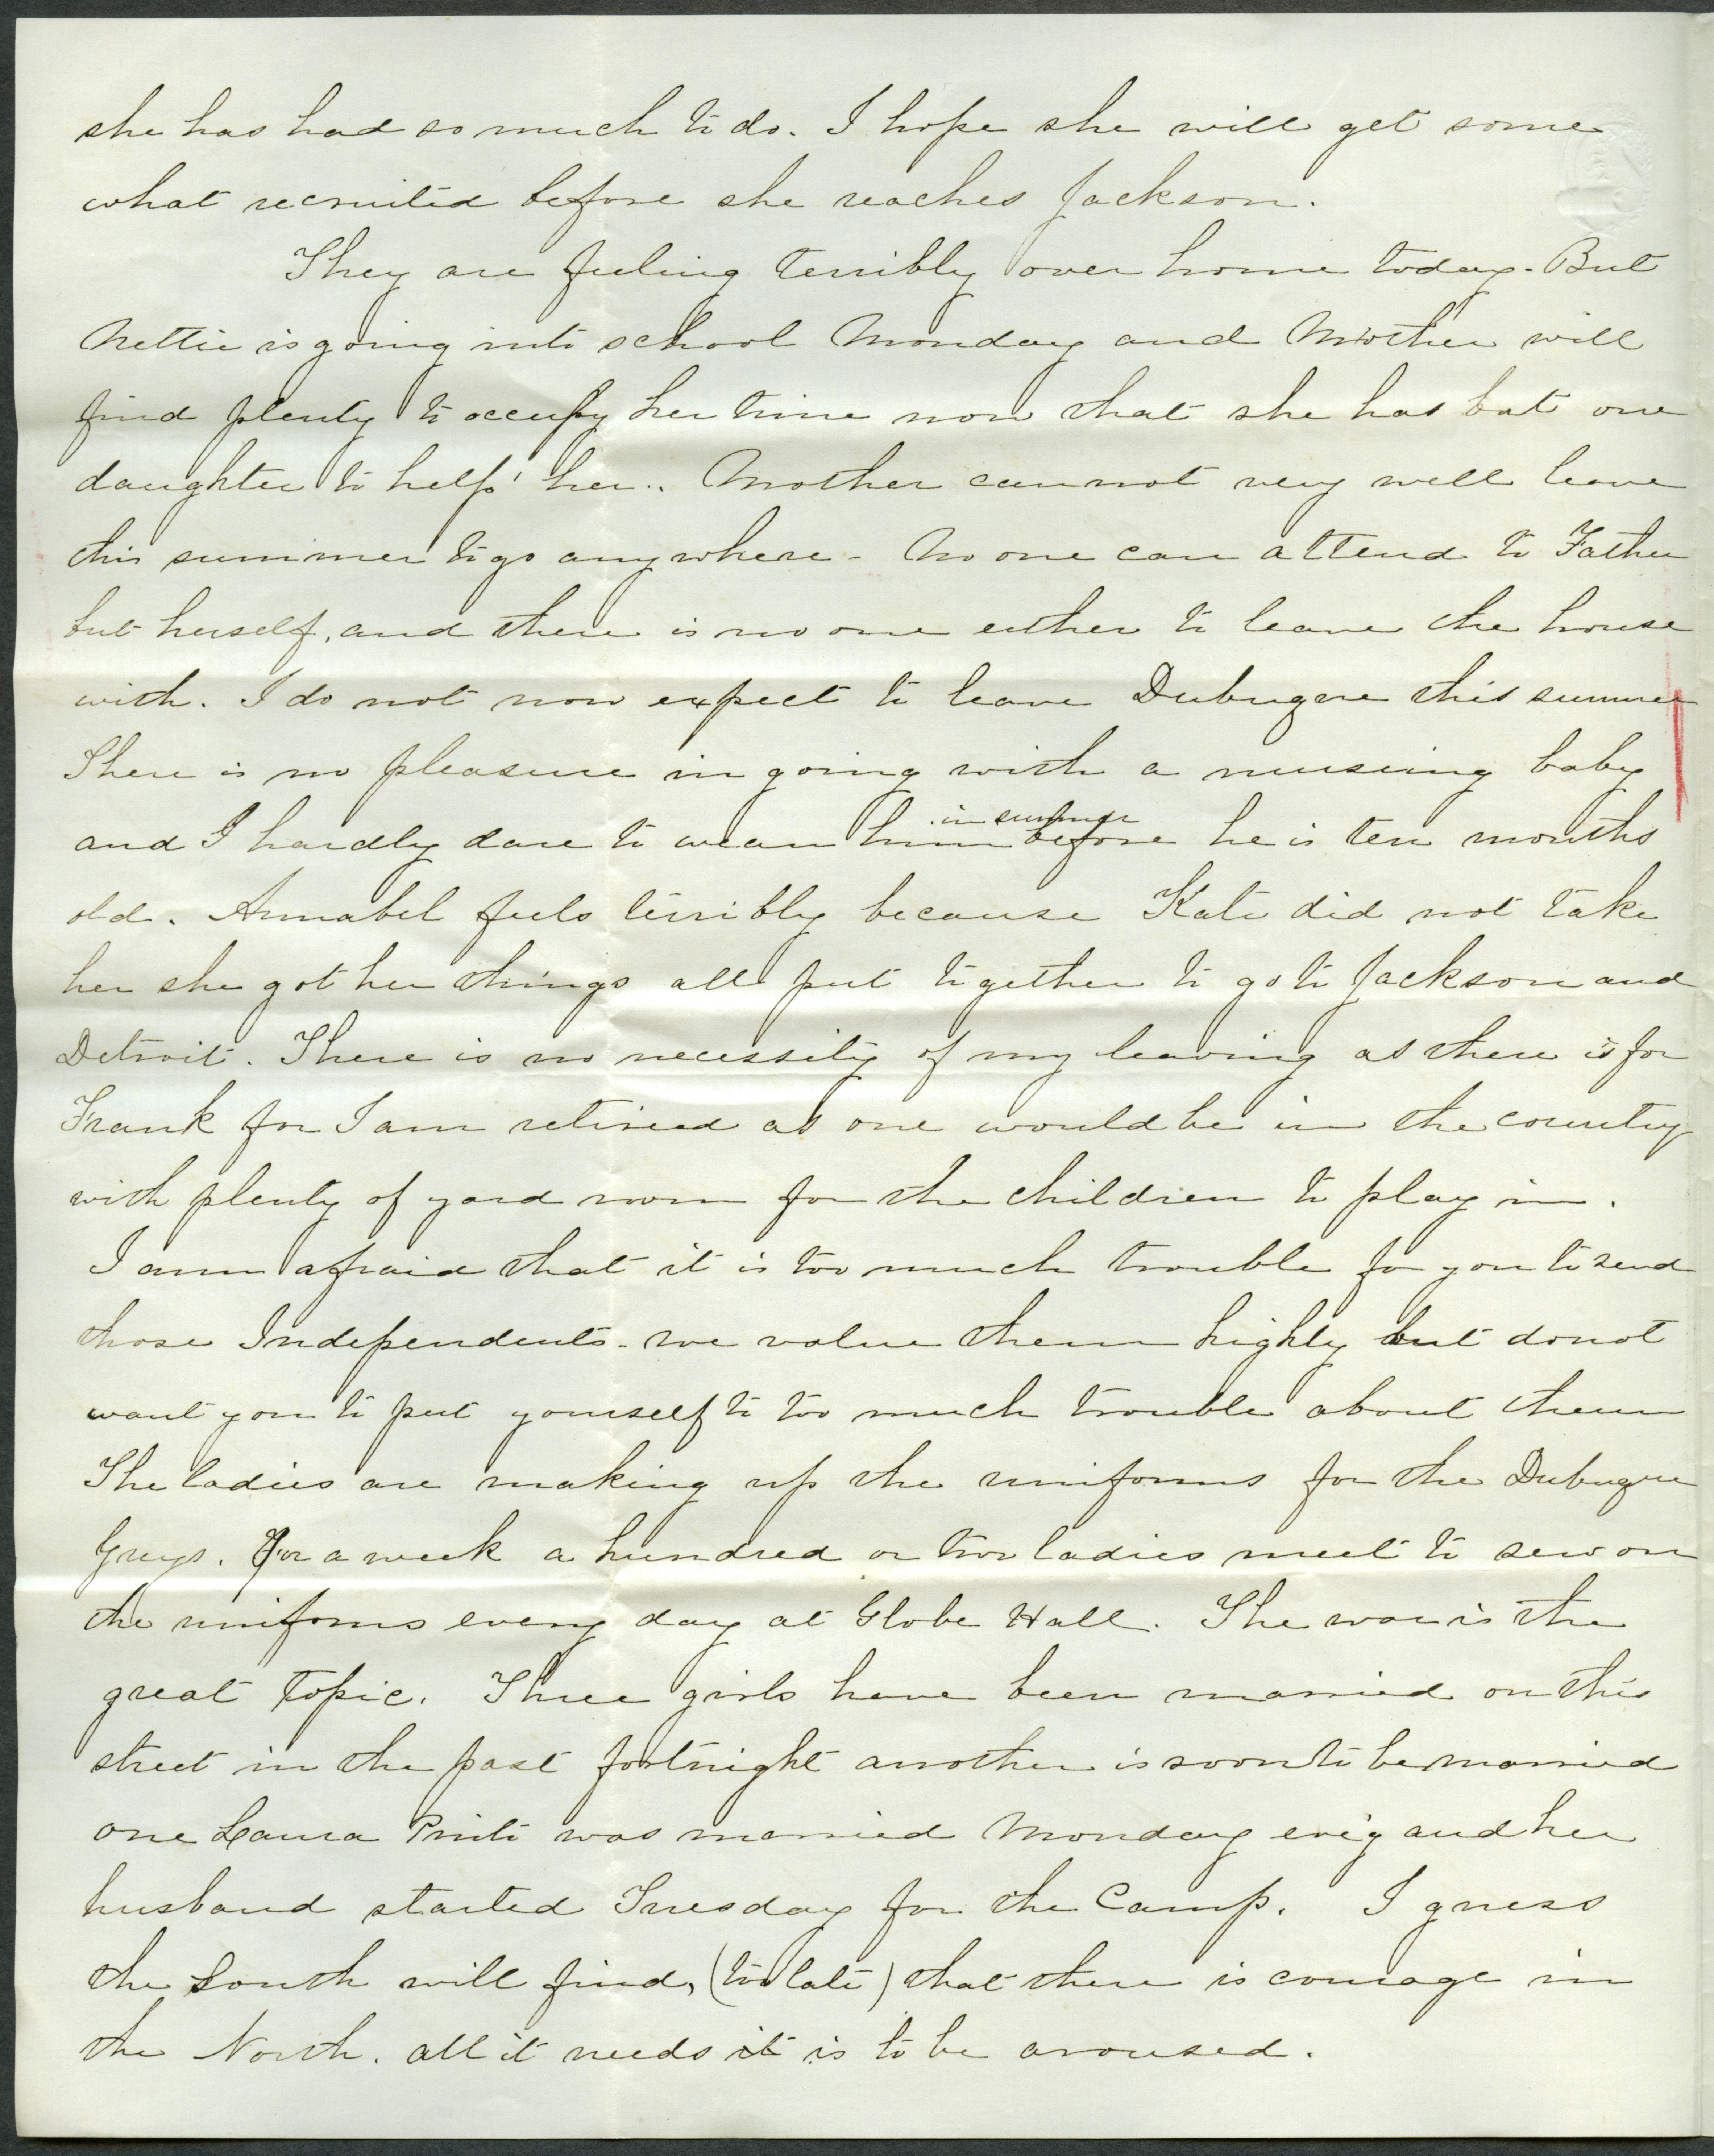 she has had so much to do. I hope she will get some
what recruited before she reaches Jackson.
They are feeling terribly over home today. But
Nettie is going into school Monday and Mother will
find plenty to occupy her time now that she has but one
daughter to help her. Mother cannot very well leave
this summer to go anywhere - No one can attend to Father
but herself, and there is no one either to leave the house
with. I do not now expect to leave Dubuque this summer
There is no pleasure in going with a nurseing baby
and I hardly dare to wean him in summer before he is ten months
old. Annabel feels terribly because Kate did not take
her she got her things all put together to go to Jackson and
Detroit. There is no necessity of my leaving as there is for
Frank for I am retired as one would be in the country
with plenty of yard room for the children to play in.
I am afraid that it is too much trouble for you to send
those Independents - we value them highly but do not
want you to put yourself to too much trouble about them
The ladies are making up the uniforms for the Dubuque
Greys. For a week a hundred or two ladies meet to sew on
the uniforms every day at Globe Hall. The war is the
great topic. Three girls have been married on this
street in the past fortnight another is soon to be married
one Laura was married Monday ev'g and her
husband started Tuesday for the Camp. I guess
the South will find, (too late) that there is courage in
the North. all it needs it is to be aroused.